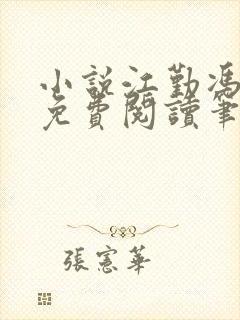 小説江勤馮
免費閱讀筆
張憲華